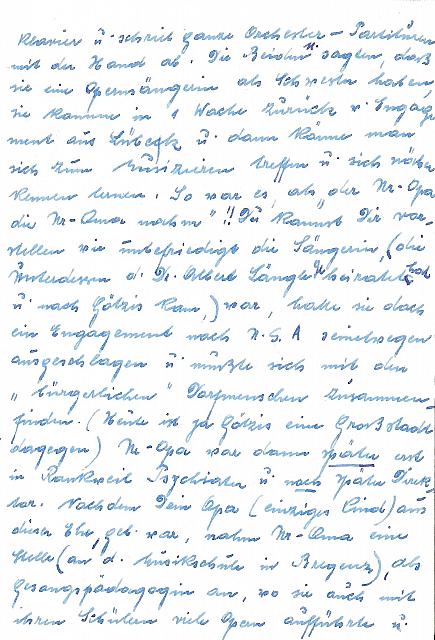 Klavier u. schrieb ganze Orchester-Partituren
mit der Hand ab. Die Beiden sagten, daß
sie eine Opernsängerin als Schwester haben,
sie komme in 1 Woche zurück v. Engage
ment aus Lübeck u. dann könne man
sich zum Musizieren treffen u. sich näher
kennen lernen. So war es, als "der Ur-Opa
die Ur-Oma nahm"!! Du kannst Dir vor-
stellen wie unbefriedigt die Sängerin, (die
unterdessen d. Dr. Albert Längle geheiratet hat
u. nach Götzis kam,) war, hatte sie doch
ein Engagement nach U.S.A seinetwegen
ausgeschlagen u. mußte sich mit den
"bürgerlichen" Dorfmenschen zusammen-
finden. (Heute ist ja Götzis eine Großstadt
dagegen) Ur-Opa war dann später erst
in Rankweil Psychiater u. noch später Direk
tor. Nachdem Dein Opa (einziges Kind) aus
dieser Ehe, geb. war, nahm Ur-Oma eine
Stelle (an d. Musikschule in Bregenz), als
Gesangspädagogin an, wo sie auch mit
ihren Schülern viele Opern aufführte u.